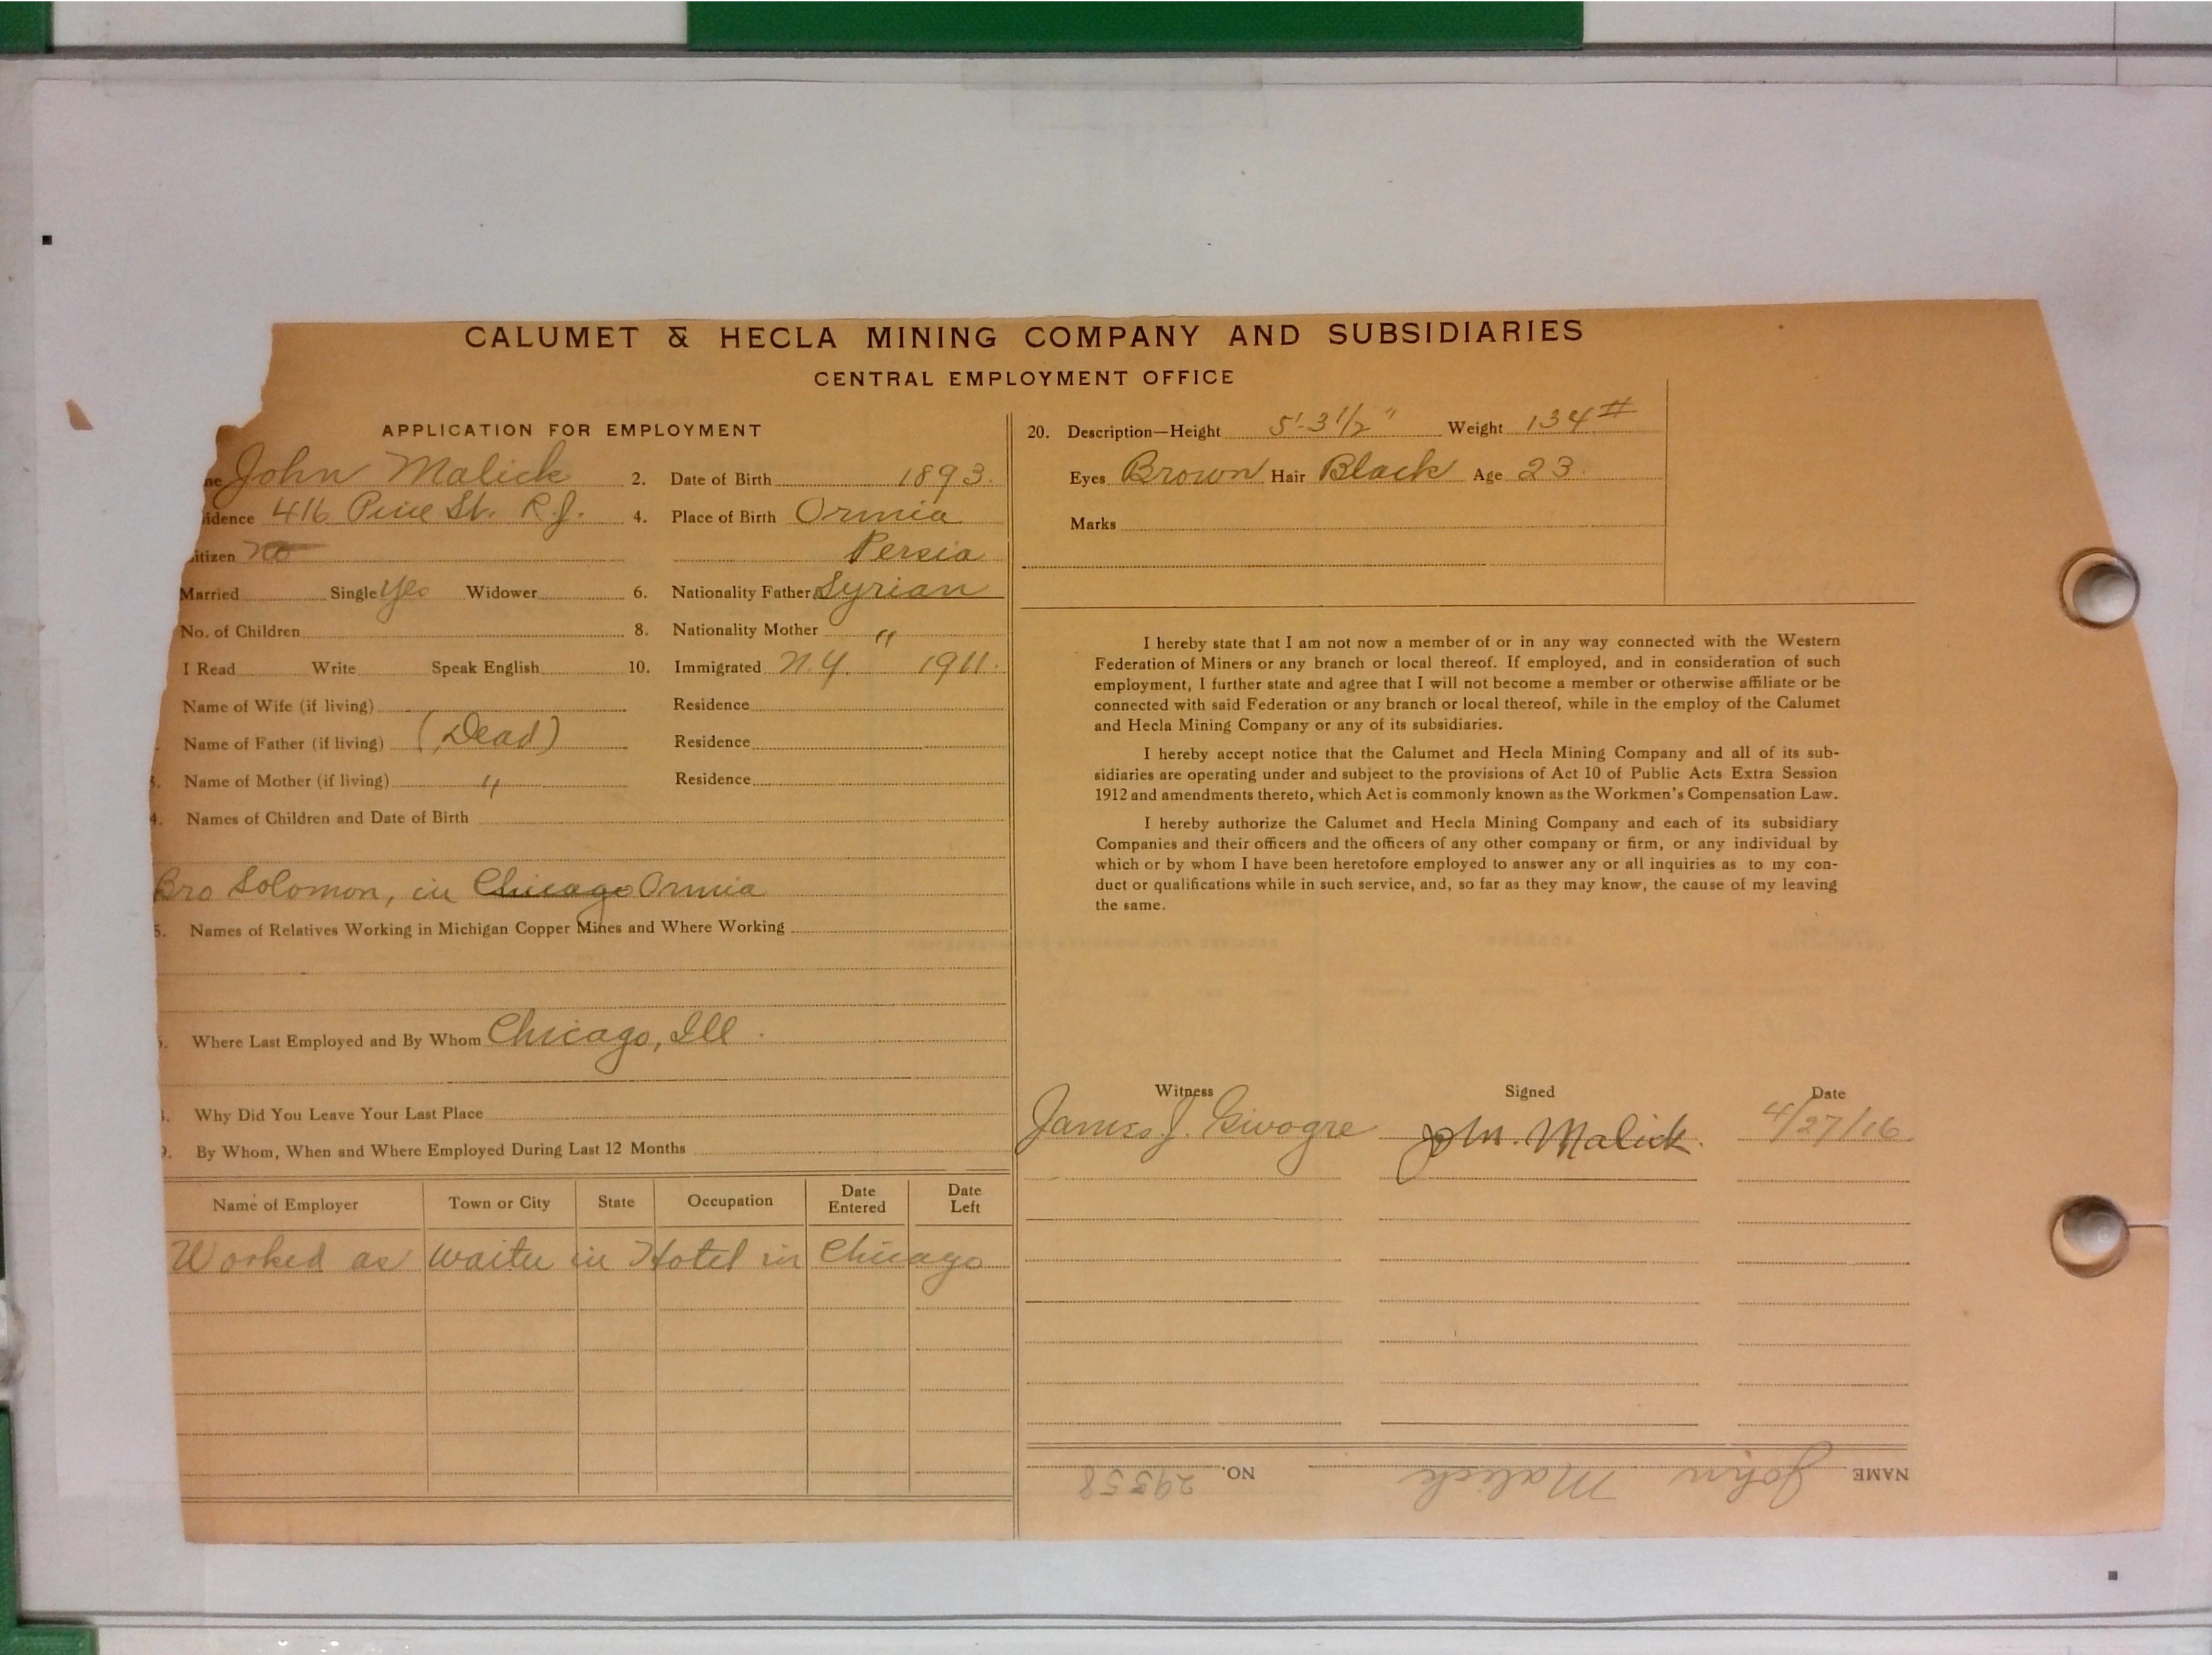 CALUMET & HECLA MINING COMPANY AND SUBSIDIARIES
CENTRAL EMPLOYMENT OFFICE
APPLICATION FOR EMPLOYMENT
ne John Malick 2. Date of Birth 1893.
idence 416 Pine St. R.J. 4. Place of Birth Ormia
itizen no Persia
Married Single Yes Widower 6. Nationality Father Syrian
No. of Children 8. Nationality Mother "
I Read Write Speak English 10. Immigrated N.Y. 1911.
Name of Wife (if living) Residence
Name of Father (if living) (Dead) Residence
Name of Mother (if living) " Residence
4. Names of Children and Date of Birth
Bro Solomon, in Chicago Ormia
5. Names of Relatives Working in Michigan Copper Mines and Where Working
Where Last Employed and By Whom Chicago, Ill.
Why Did You Leave Your Last Place
9. By Whom, When and Where Employed During Last 12 Months
Name of Employer Town or City State Occupation Date Entered Date Left
Worked as waiter in Hotel in Chicago
20. Description—Height 5'-3 1/2" Weight 134#
Eyes Brown Hair Black Age 23
Marks
I hereby state that I am not now a member of or in any way connected with the Western
Federation of Miners or any branch or local thereof. If employed, and in consideration of such
employment, I further state and agree that I will not become a member or otherwise affiliate or be
connected with said Federation or any branch or local thereof, while in the employ of the Calumet
and Hecla Mining Company or any of its subsidiaries.
I hereby accept notice that the Calumet and Hecla Mining Company and all of its sub-
sidiaries are operating under and subject to the provisions of Act 10 of Public Acts Extra Session
1912 and amendments thereto, which Act is commonly known as the Workmen's Compensation Law.
I hereby authorize the Calumet and Hecla Mining Company and each of its subsidiary
Companies and their officers and the officers of any other company or firm, or any individual by
which or by whom I have been heretofore employed to answer any or all inquiries as to my con-
duct or qualifications while in such service, and, so far as they may know, the cause of my leaving
the same.
Witness Signed Date
James J. John. Malick. 4/27/16
NAME John Malick NO. 29358